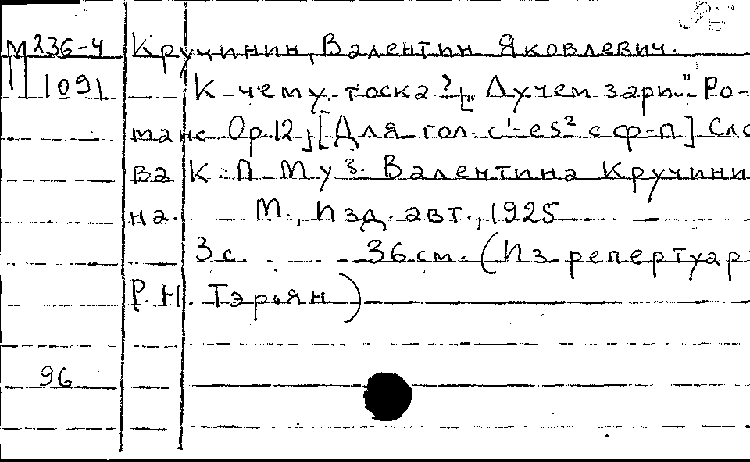 М 236-4 Кручинин, Валентин Яковлевич.
1091 К чему тоска? [„Лучем зари..." Ро-
манс Ор. 12]. [Для гол. c¹-es² с ф-п] Сло
ва К. П. Муз. Валентина Кручини
на. М., Изд. авт., 1925
3 с. 36 см. (Из репертуар
Р. Н. Тэрьян)
96